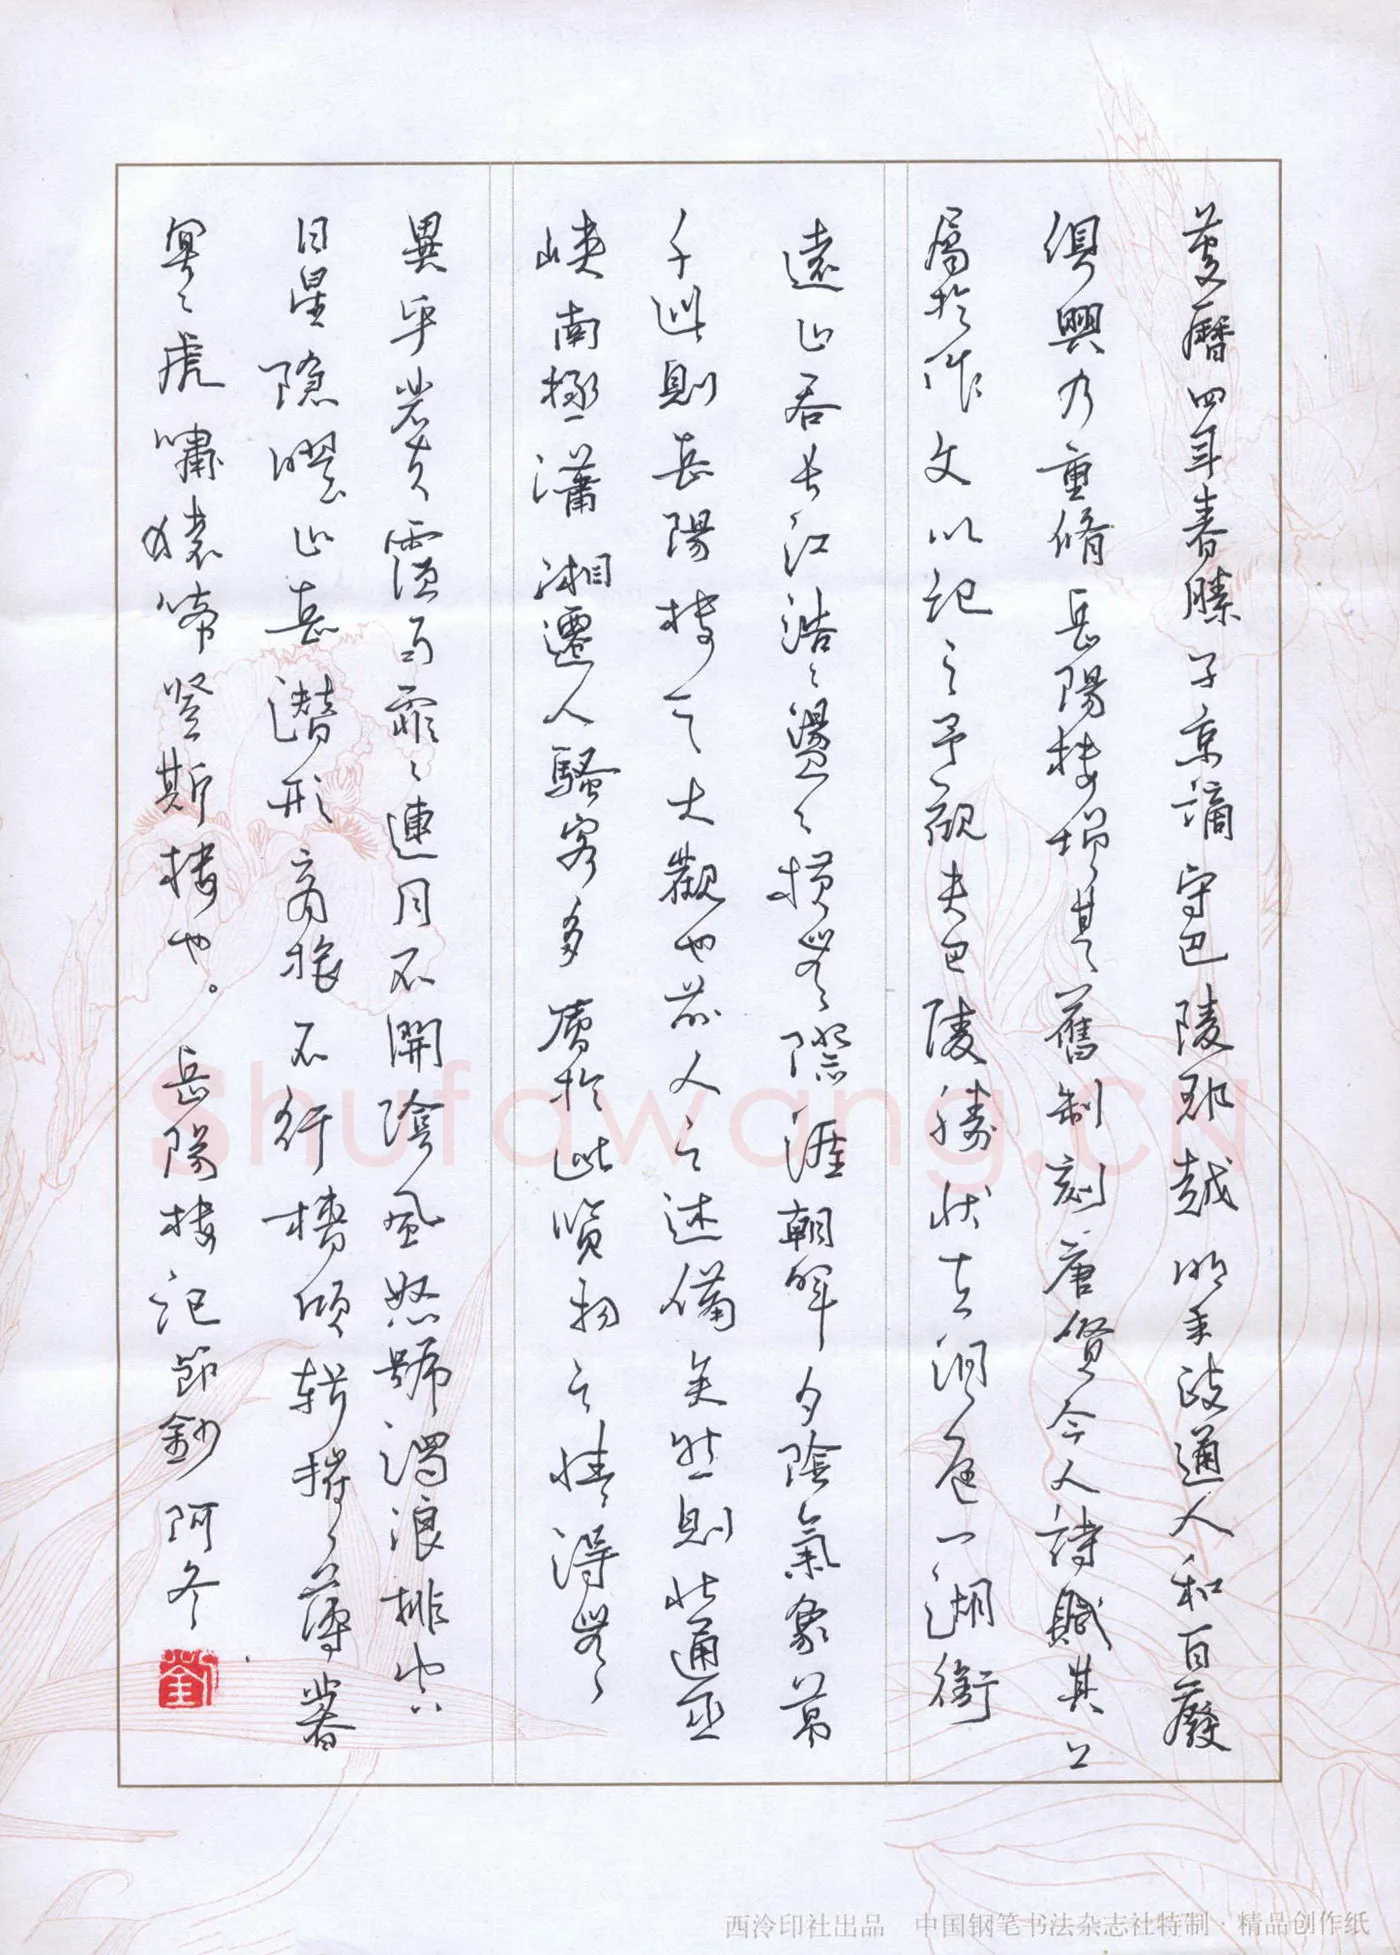 慶曆四年春滕子京謫守巴陵郡越明年政通人和百廢
俱興乃重脩岳陽樓增其舊制刻唐賢今人詩賦其上
屬於作文以記之予觀夫巴陵勝狀在洞庭一湖銜
遠山吞長江浩〻蕩〻橫無際涯朝暉夕陰氣象萬
千此則岳陽樓之大觀也前人之述備矣然則北通巫
峽南極瀟湘遷人騷客多會於此覽物之情得無
異乎若夫霪雨霏〻連月不開陰風怒號濁浪排空
日星隱曜山岳潛形商旅不行檣傾楫摧薄暮
冥〻虎嘯猿啼登斯樓也。岳陽樓記節鈔 阿冬
劉
Shufawang.CN
西泠印社出品 中国钢笔书法杂志社特制·精品创作纸